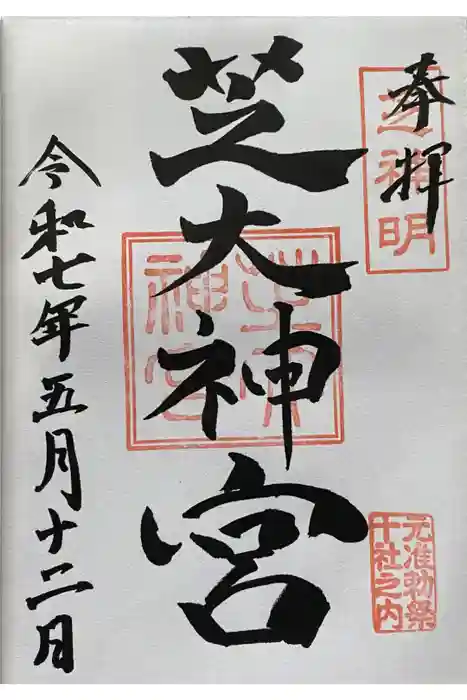 奉拝
芝神明
芝大神宮
芝大神宮
元准勅祭
十社之内
令和七年五月十二日